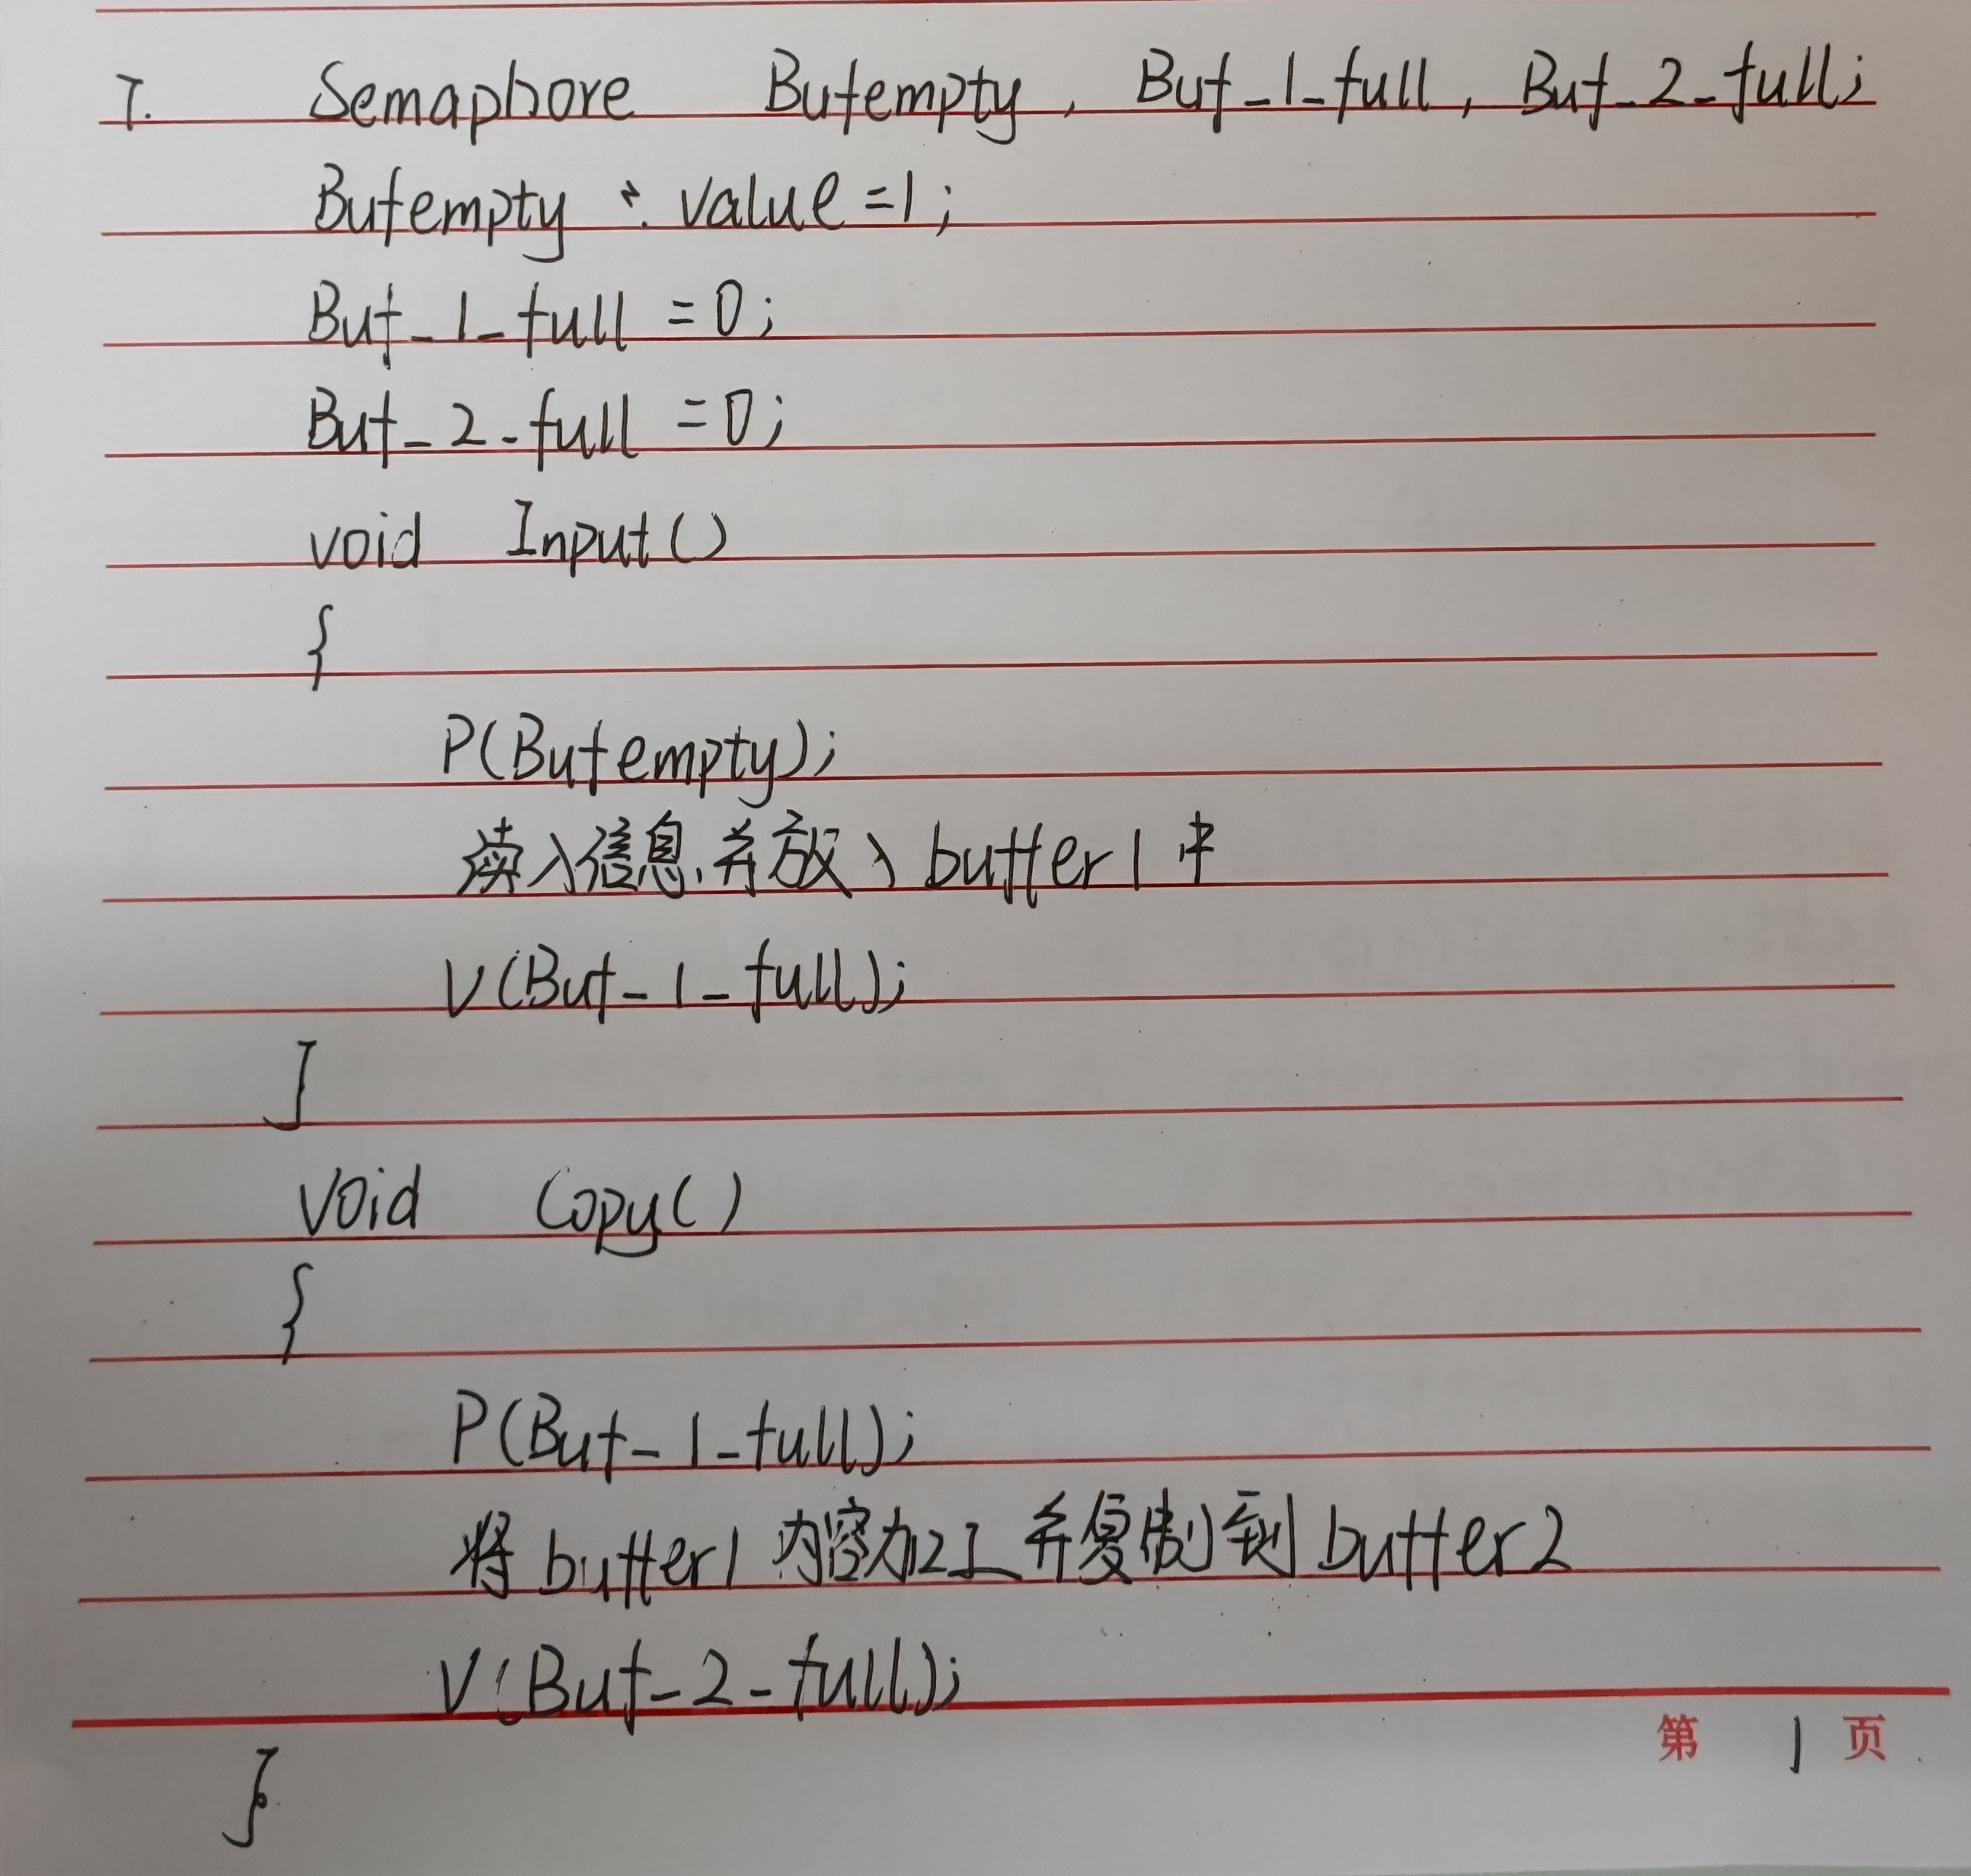 7. Semaphore Bufempty, Buf_1_full, Buf_2_full;
Bufempty . value=1;
Buf_1_full =0;
Buf_2_full =0;
void Input()
{
P(Bufempty);
读入信息,并放入buffer1中
V(Buf_1_full);
}
void Copy()
{
P(Buf_1_full);
将buffer1内容加工并复制到buffer2
V(Buf_2_full);
第 1 页
}